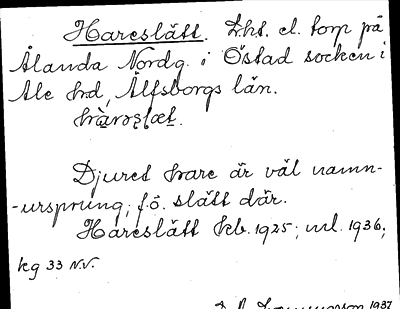 Hareslätt. Lht. el. torp på
Ålanda Nordg. i Östad socken i
Ale hd, Älfsborgs län.
Djuret hare är väl namn-
-ursprung; f.ö. slätt där.
Hareslätt hb. 1925; ml. 1936;
kg 33 N.V.
1937